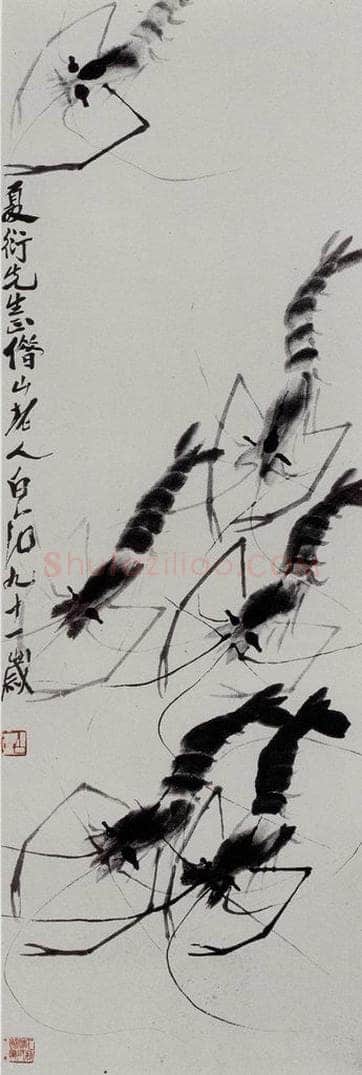 夏衍先生正借山老人白石九十一歲
Shufaziliao.COM